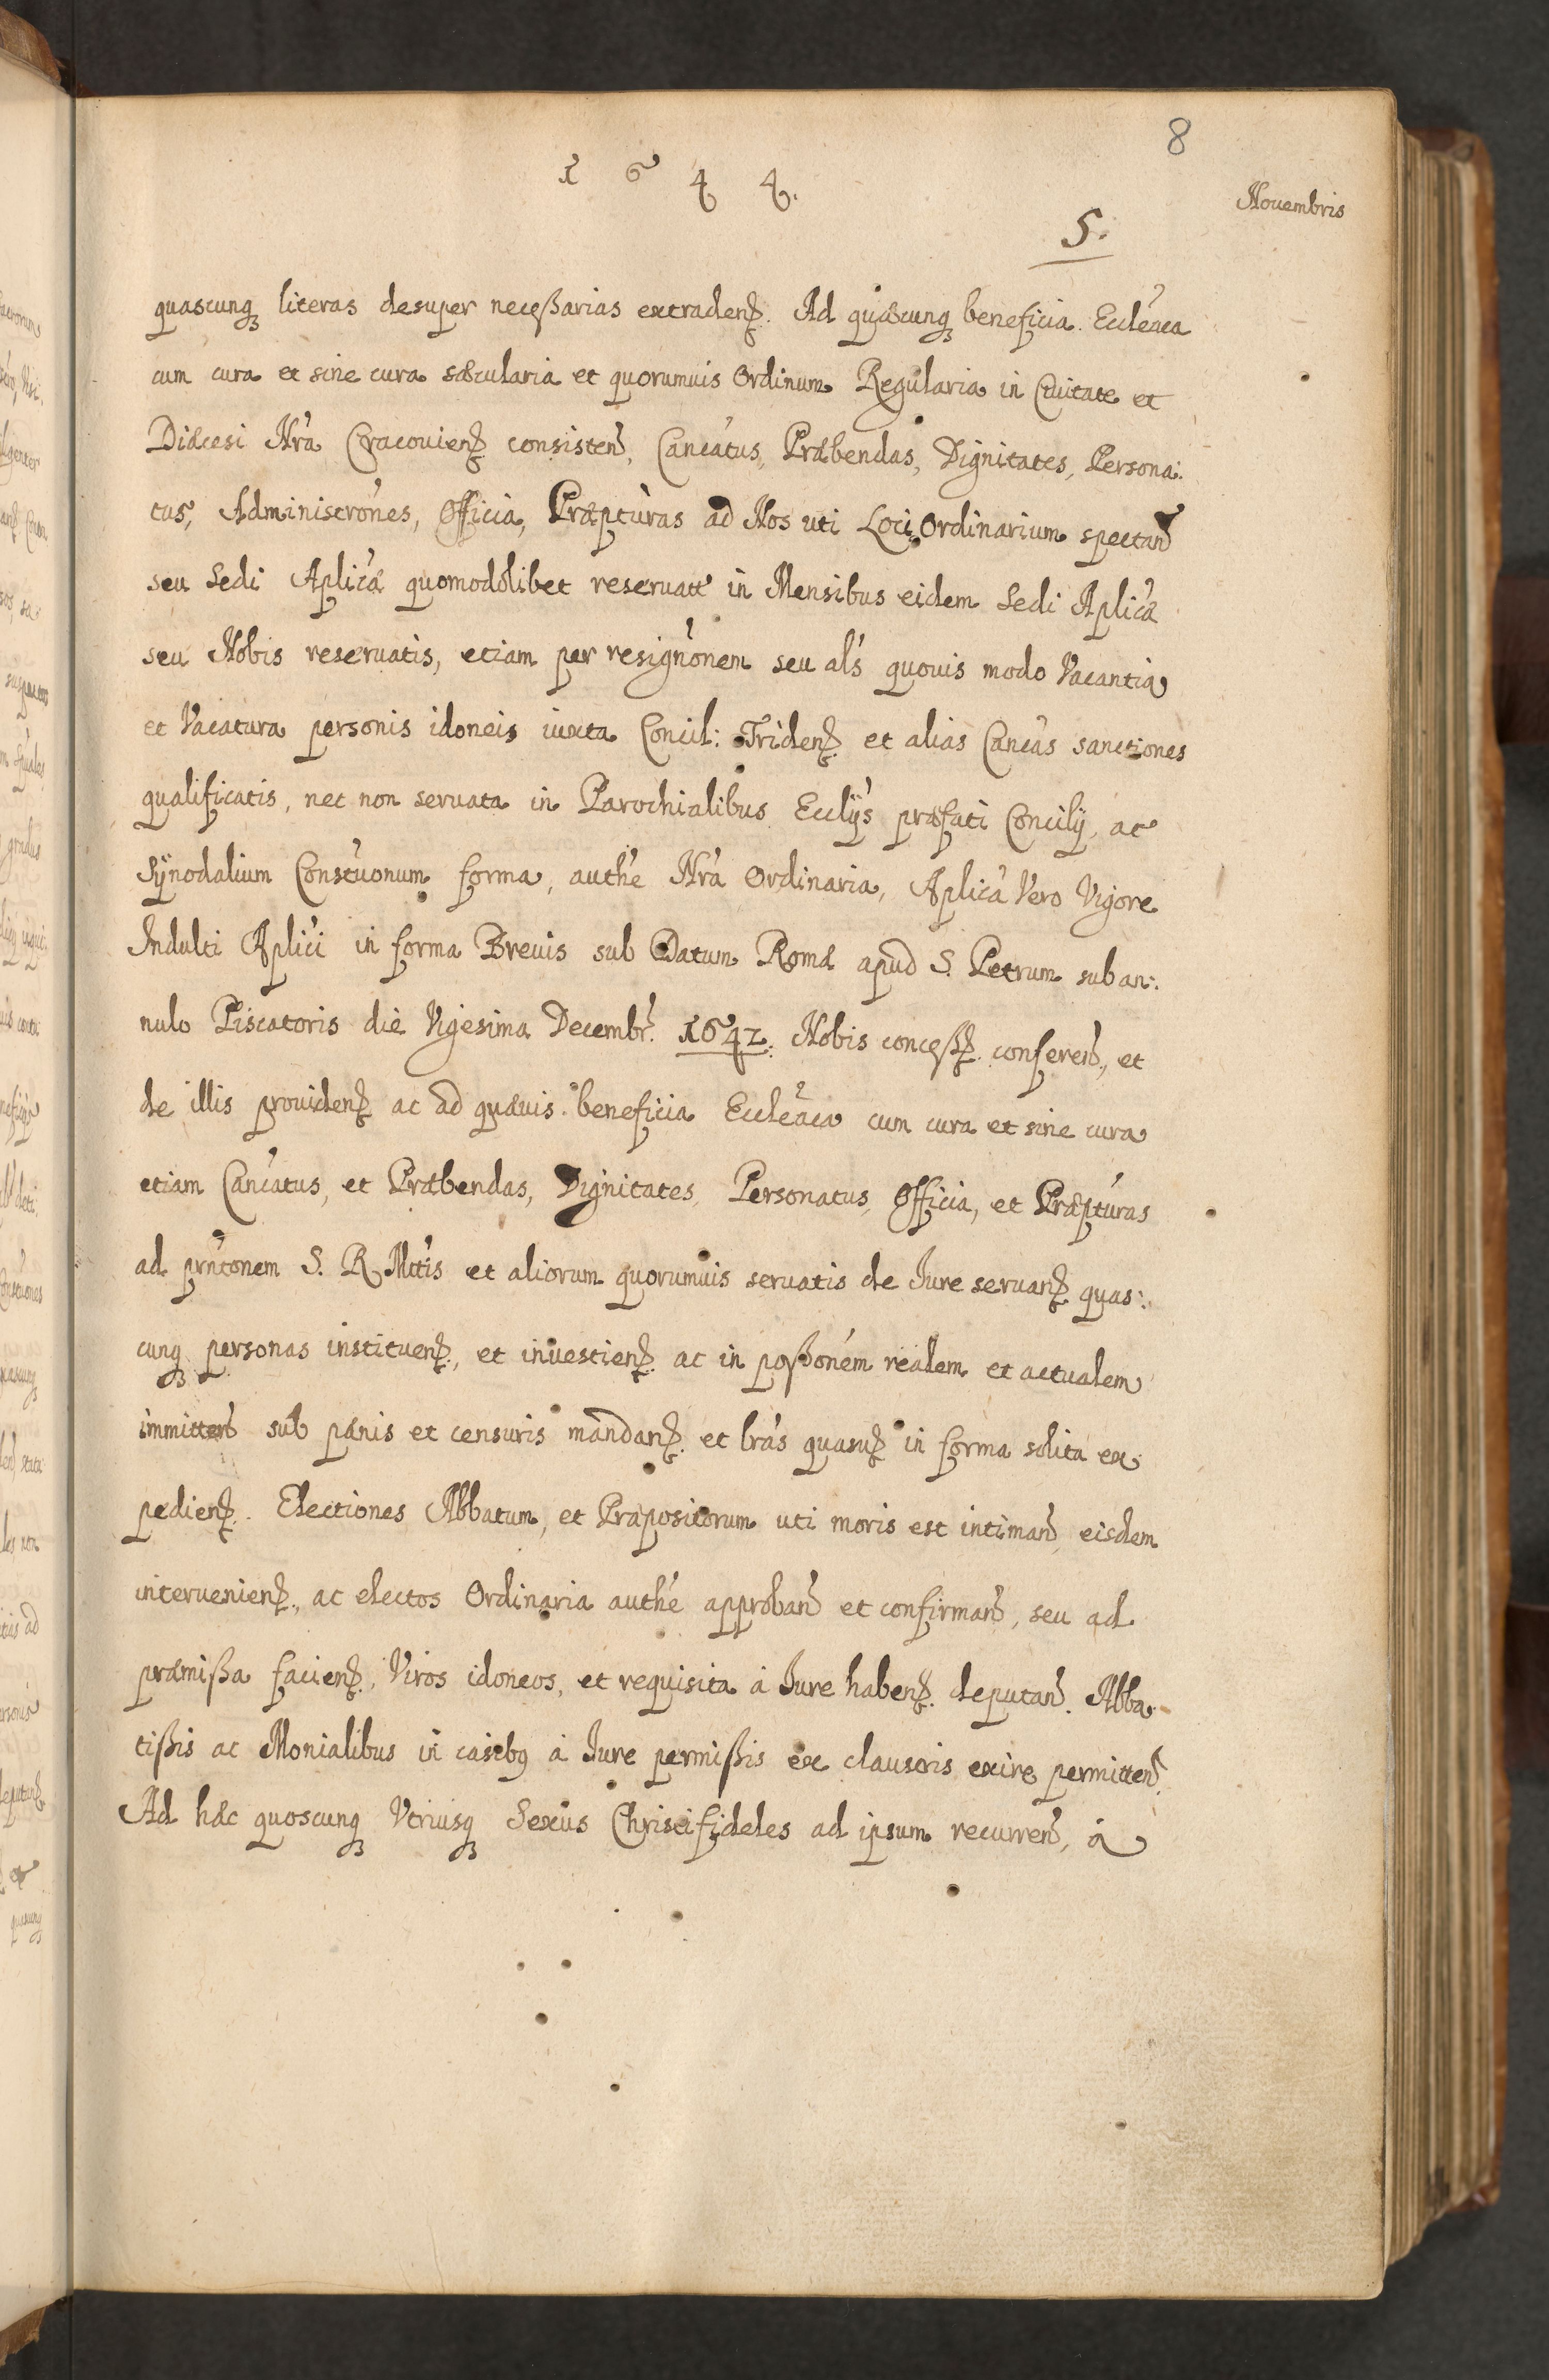 8
1 6 4 4.
Nouembris
5.
quascunq literas desuper necessarias extradenꝭ. Ad quæcunq beneficia Eccleãca
cum cura et sine cura sæcularia et quorumuis Ordinum Regularia in Ciuitate et
Diæcesi Nra Cracouienꝭ consisten, Cancatus, Præbendas, Dignitates, Persona:
tus, Administrones, Officia, Præpturas ad Nos uti Loci Ordinarium spectan
seu Sedi Aplicæ quomodolibet reseruatt in Mensibus eidem Sedi Aplicæ
seu Nobis reseruatis, etiam per resignonem seu als quouis modo Vacantia
et Vacatura personis idoneis iuxta Concil: Tridenꝭ et alias Cancas sanctiones
qualificatis, nec non seruata in Parochialibus Ecclijs præfati Concilij, ac
Synodalium Constuonum forma, authe Nra Ordinaria, Aplica Vero Vigore
Indulti Aplici in forma Breuis sub Datum Romæ apud S. Petrum sub an:
nulo Piscatoris die Vigesima Decembr. 1642. Nobis concessꝭ conferen, et
de illis prouidenꝭ ac ad quæuis beneficia Eccleãca cum cura et sine cura
etiam Cancatus, et Præbendas, Dignitates, Personatus, Officia, et Præpturas
ad prntonem S. R. Mttis et aliorum quorumuis seruatis de Iure seruanꝭ quas:
cunq personas instituenꝭ, et inuestienꝭ ac in possonem realem et actualem
immitten sub pænis et censuris mandanꝭ et lras quasuꝭ in forma solita ex
pedienꝭ. Electiones Abbatum, et Præpositorum uti moris est intiman, eisdem
interuenienꝭ, ac electos Ordinaria authe approban et confirman, seu ad
præmissa facienꝭ, Viros idoneos, et requisita à Iure habenꝭ deputan. Abba
tissis ac Monialibus in casibq à Iure permissis ex claustris exire permitten.
Ad hæc quoscunq Vtriusq Sexus Christifideles ad ipsum recurren, à